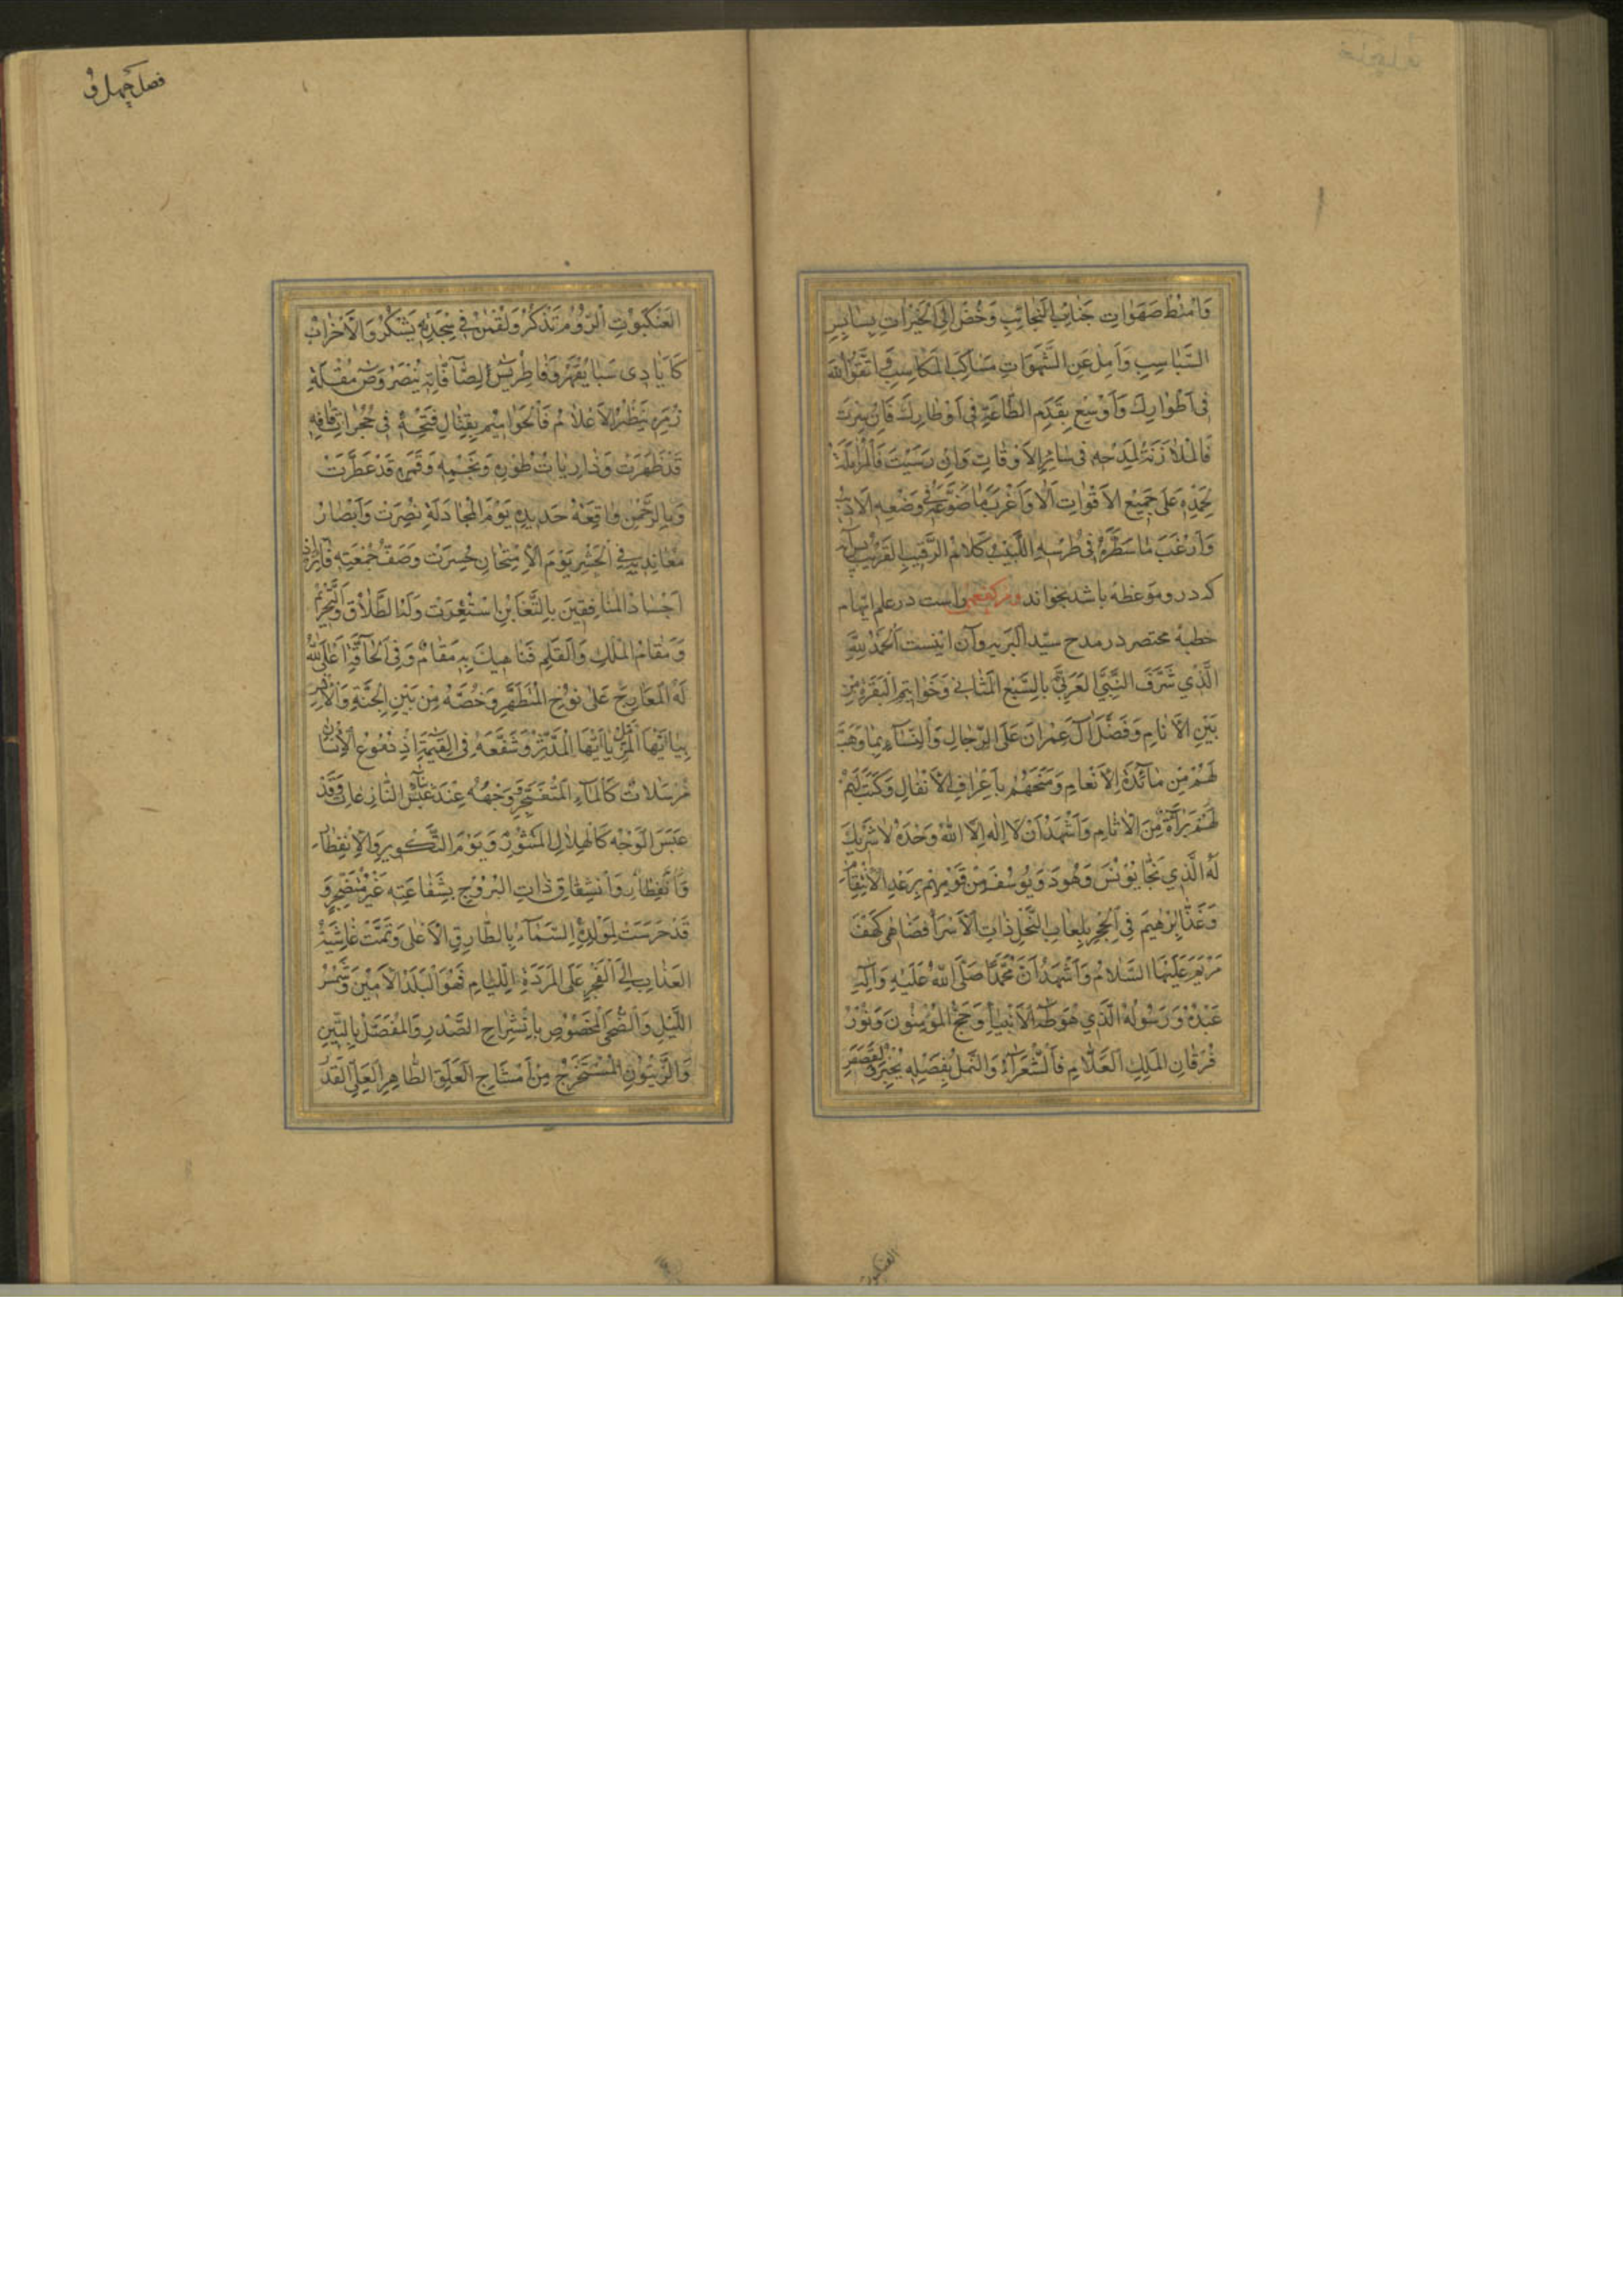 وَامْتَطِ صَهَوَاتِ جَنَائِبِ النَّجَائِبِ وَخُضْ اِلَى الْخَيْرَاتِ
السَّبَاسِبِ وَاَمِلْ عَنِ الشَّهَوَاتِ مَسَاكِبَ الْمَكَاسِبِ وَاتَّقُوا اللّٰهَ
فِى اَطْوَارِكَ وَاَوْسِعْ بِقَدَمِ الطَّاعَةِ فِى اَوْطَارِكَ فَاِنْ
فَالْمُلَازَمَةُ لِمَدْحِهِ فِى سَائِرِ الْاَوْقَاتِ وَاِنْ رَسَيْتَ
لِحَمْدِهِ عَلَى جَمِيْعِ الْاَقْوَاتِ اَلَا وَاَغْرَبَ مَا فِى وَضْعِهِ
وَاَرْغَبَ مَا سَطَّرَهُ فِى طُرْسِهِ اللَّبِيْبُ كَلَامُ الرَّقِيْبِ الْقَرِيْبِ پس آيه
كه درو موعظه باشد بخواند و مر كفعمى راست در علم ايهام
خطبهٔ مختصر در مدح سيّد البريه و آن اينست اَلْحَمْدُ لِلّٰهِ
الَّذِي شَرَّفَ النَّبِيَّ الْعَرَبِيَّ بِالسَّبْعِ الْمَثَانِي وَخَوَاتِيْمِ الْبَقَرَةِ مِنْ
بَيْنِ الْاَنَامِ وَفَضَّلَ اٰلَ عِمْرَانَ عَلَى الرِّجَالِ وَالنِّسَآءِ بِمَا وَهَبَ
لَهُمْ مِنْ مَائِدَةِ الْاَنْعَامِ وَمَنَحَهُمْ بِاَعْرَافِ الْاَنْفَالِ وَكَتَبَ لَهُمْ
لَهُمْ بَرَآءَةً مِنَ الْاٰثَامِ وَاَشْهَدُ اَنْ لَا اِلٰهَ اِلَّا اللّٰهُ وَحْدَهُ لَا شَرِيْكَ
لَهُ الَّذِي نَجَّا يُوْنُسَ وَهُوْدَ وَيُوْسُفَ مِنْ قَوْمِهِمْ بِرَعْدِ الْاِنْتِقَامِ
وَغَذَّا اِبْرٰهِيْمَ فِى الْحِجْرِ بِلُعَابِ النَّحْلِ ذَاتِ الْاَسْرَا فَضَاهٰى كَهْفَ
مَرْيَمَ عَلَيْهَا السَّلَامُ وَاَشْهَدُ اَنَّ مُحَمَّدًا صَلَّى اللّٰهُ عَلَيْهِ وَاٰلِهِ
عَبْدُهُ وَرَسُوْلُهُ الَّذِي هُوَ طٰهٰ الْاَنْبِيَاءِ وَحَجُّ الْمُؤْمِنُوْنَ وَنُوْرُ
فُرْقَانِ الْمَلِكِ الْعَلَّامِ فَالشُّعَرَآءُ وَالنَّمْلُ بِفَضْلِهِ يُخْبِرُ وَالْقَصَصِ
العنكبوت
فصل چهل و
الْعَنْكَبُوْتِ الرُّوْمُ تَذْكُرُ وَلُقْمٰنُ فِي سَجْدَتِهِ يَشْكُرُ وَالْاَحْزَابُ
كَاَيَادِى سَبَا يُقْهَرُ وَفَاطِرُ يٰسٓ الصَّآفَّاتِ يَنْصُرُ وَصٓ مُقْلَةِ
زُمَرِ يَنْظُرُ الْاَعْلَامُ فَالْحَوَامِيْمُ بِقِتَالِ فَتْحِهِ فِى حُجُرَاتِ قَافِهِ
قَدْ ظَهَرَتْ وَذَارِيَاتُ طُوْرِهِ وَنَجْمِهِ وَقَمَرِهِ قَدْ عَطَّرَتْ
وَبِالرَّحْمٰنِ وَاقِعَةُ حَدِيْدِهِ يَوْمَ الْمُجَادَلَةِ نُصِرَتْ وَاَبْصَارُ
مُعَانِدِيْهِ فِي الْحَشْرِ يَوْمَ الْاِمْتِحَانِ حُسِرَتْ وَصَفُّ جُمْعَتِهِ فَائِزٌ اِذْ
اَجْسَادُ الْمُنَافِقِيْنَ بِالتَّغَابُنِ اسْتُعِرَتْ وَلَنَا الطَّلَاقُ وَالتَّحْرِيْمُ
وَمَقَامُ الْمُلْكِ وَالْقَلَمِ فَنَاهِيْكَ بِهِ مَقَامٌ وَفِى الْحَآقَّةِ اَعْلَى اللّٰهُ
لَهُ الْمَعَارِجَ عَلَى نُوْحِ الْمُتَطَهِّرِ وَخَصَّهُ مِنْ بَيْنِ الْجِنَّةِ وَالْاِنْسِ
بِيَا اَيُّهَا الْمُزَّمِّلُ يَا اَيُّهَا الْمُدَّثِّرُ وَشَفَّعَهُ فِى الْقِيٰمَةِ اِذْ دُمُوْعُ الْاِنْسَانِ
مُرْسَلَاتٌ كَالْمَآءِ الْمُتَفَجِّرِ وَوَجْهُهُ عِنْدَ نَبَأِ النَّازِعَاتِ وَقَدْ
عَبَسَ الْوَجْهَ كَالْهِلَالِ الْمُتَنَوِّرِ وَيَوْمَ التَّكْوِيْرِ وَالْاِنْفِطَارِ
وَانْشِقَاقِ ذَاتِ الْبُرُوْجِ بِشَفَاعَتِهِ غَيْرُ مُتَضَجِّرٍ وَ
قَدْ حَرَسَتْ لِمَوْلِدِهِ السَّمَآءُ بِالطَّارِقِ الْاَعْلٰى وَتَمَّتْ غَاشِيَةُ
الْعَذَابِ اِلَى الْفَجْرِ عَلَى الْمَرَدَةِ اللِّئَامِ فَهُوَ الْبَلَدُ الْاَمِيْنُ وَشَمْسُ
اللَّيْلِ وَالضُّحَى الْمَخْصُوْصِ بِانْشِرَاحِ الصَّدْرِ وَالْمُفَضَّلُ بِالتِّيْنِ
وَالزَّيْتُوْنِ الْمُسْتَخْرَجُ مِنْ اَمْشَاجِ الْعَلَقِ الطَّاهِرِ الْعَلِيُّ الْقَدْرِ